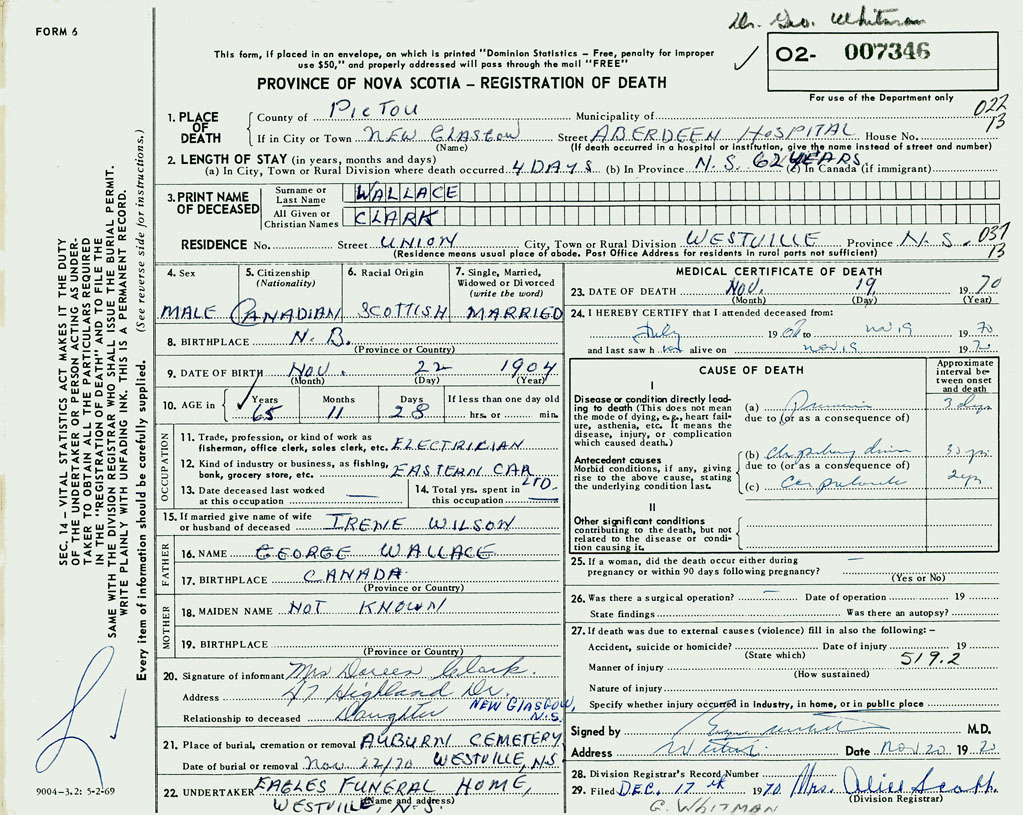 FORM 6
Dr. Geo. Whitman
This form, if placed in an envelope, on which is printed "Dominion Statistics – Free, penalty for improper
use $50," and properly addressed will pass through the mail "FREE"
02- 007346
PROVINCE OF NOVA SCOTIA – REGISTRATION OF DEATH
For use of the Department only
022
13
1. PLACE OF DEATH
County of PICTOU Municipality of
If in City or Town NEW GLASGOW Street ABERDEEN HOSPITAL House No.
(Name) (If death occurred in a hospital or institution, give the name instead of street and number)
2. LENGTH OF STAY (in years, months and days)
(a) In City, Town or Rural Division where death occurred 4 DAYS (b) In Province N.S. 62 YEARS (c) In Canada (if immigrant)
3. PRINT NAME OF DECEASED
Surname or Last Name WALLACE
All Given or Christian Names CLARK
RESIDENCE No. Street UNION City, Town or Rural Division WESTVILLE Province N.S. 037
13
(Residence means usual place of abode. Post Office Address for residents in rural parts not sufficient)
4. Sex 5. Citizenship (Nationality) 6. Racial Origin 7. Single, Married, Widowed or Divorced (write the word)
MALE CANADIAN SCOTTISH MARRIED
8. BIRTHPLACE N.B.
(Province or Country)
9. DATE OF BIRTH NOV. 22 1904
(Month) (Day) (Year)
10. AGE in Years Months Days If less than one day old
65 11 28 hrs. or min.
OCCUPATION
11. Trade, profession, or kind of work as
fisherman, office clerk, sales clerk, etc. ELECTRICIAN
12. Kind of industry or business, as fishing,
bank, grocery store, etc. EASTERN CAR LTD.
13. Date deceased last worked
at this occupation —
14. Total yrs. spent in
this occupation —
15. If married give name of wife
or husband of deceased IRENE WILSON
FATHER
16. NAME GEORGE WALLACE
17. BIRTHPLACE CANADA
(Province or Country)
MOTHER
18. MAIDEN NAME NOT KNOWN
19. BIRTHPLACE
(Province or Country)
20. Signature of informant Mrs Doreen Clark
Address 47 Highland Dr.
NEW GLASGOW, N.S.
Relationship to deceased Daughter
21. Place of burial, cremation or removal AUBURN CEMETERY
Date of burial or removal Nov. 22/70 WESTVILLE, N.S
22. UNDERTAKER EAGLES FUNERAL HOME,
WESTVILLE, N.S.
(Name and address)
MEDICAL CERTIFICATE OF DEATH
23. DATE OF DEATH NOV. 19 1970
(Month) (Day) (Year)
24. I HEREBY CERTIFY that I attended deceased from:
July 19 to Nov 19 1970
and last saw h alive on Nov 19 19
CAUSE OF DEATH
Approximate interval between onset and death
I
Disease or condition directly leading
to death (This does not mean
the mode of dying, e.g., heart failure,
asthenia, etc. It means the
disease, injury, or complication
which caused death.)
(a) 3 days
due to (or as a consequence of)
Antecedent causes
Morbid conditions, if any, giving
rise to the above cause, stating
the underlying condition last.
(b)
due to (or as a consequence of)
(c)
II
Other significant conditions
contributing to the death, but not
related to the disease or condition
causing it.
25. If a woman, did the death occur either during
pregnancy or within 90 days following pregnancy? —
(Yes or No)
26. Was there a surgical operation? — Date of operation 19
State findings Was there an autopsy?
27. If death was due to external causes (violence) fill in also the following: –
Accident, suicide or homicide? Date of injury 19
(State which) 519.2
Manner of injury
(How sustained)
Nature of injury
Specify whether injury occurred in industry, in home, or in public place
Signed by M.D.
Address Date Nov 20 1970
28. Division Registrar's Record Number
29. Filed DEC. 17th 1970 Mrs. Alice Scott
(Division Registrar)
G. WHITMAN
SEC. 14 – VITAL STATISTICS ACT MAKES IT THE DUTY
OF THE UNDERTAKER OR PERSON ACTING AS UNDER-
TAKER TO OBTAIN ALL THE PARTICULARS REQUIRED
IN THE "REGISTRATION OF DEATH" AND TO FILE THE
SAME WITH THE DIVISION REGISTRAR WHO SHALL ISSUE THE BURIAL PERMIT.
WRITE PLAINLY WITH UNFADING INK. THIS IS A PERMANENT RECORD.
Every item of information should be carefully supplied. (See reverse side for instructions.)
9004-3.2: 5-2-69